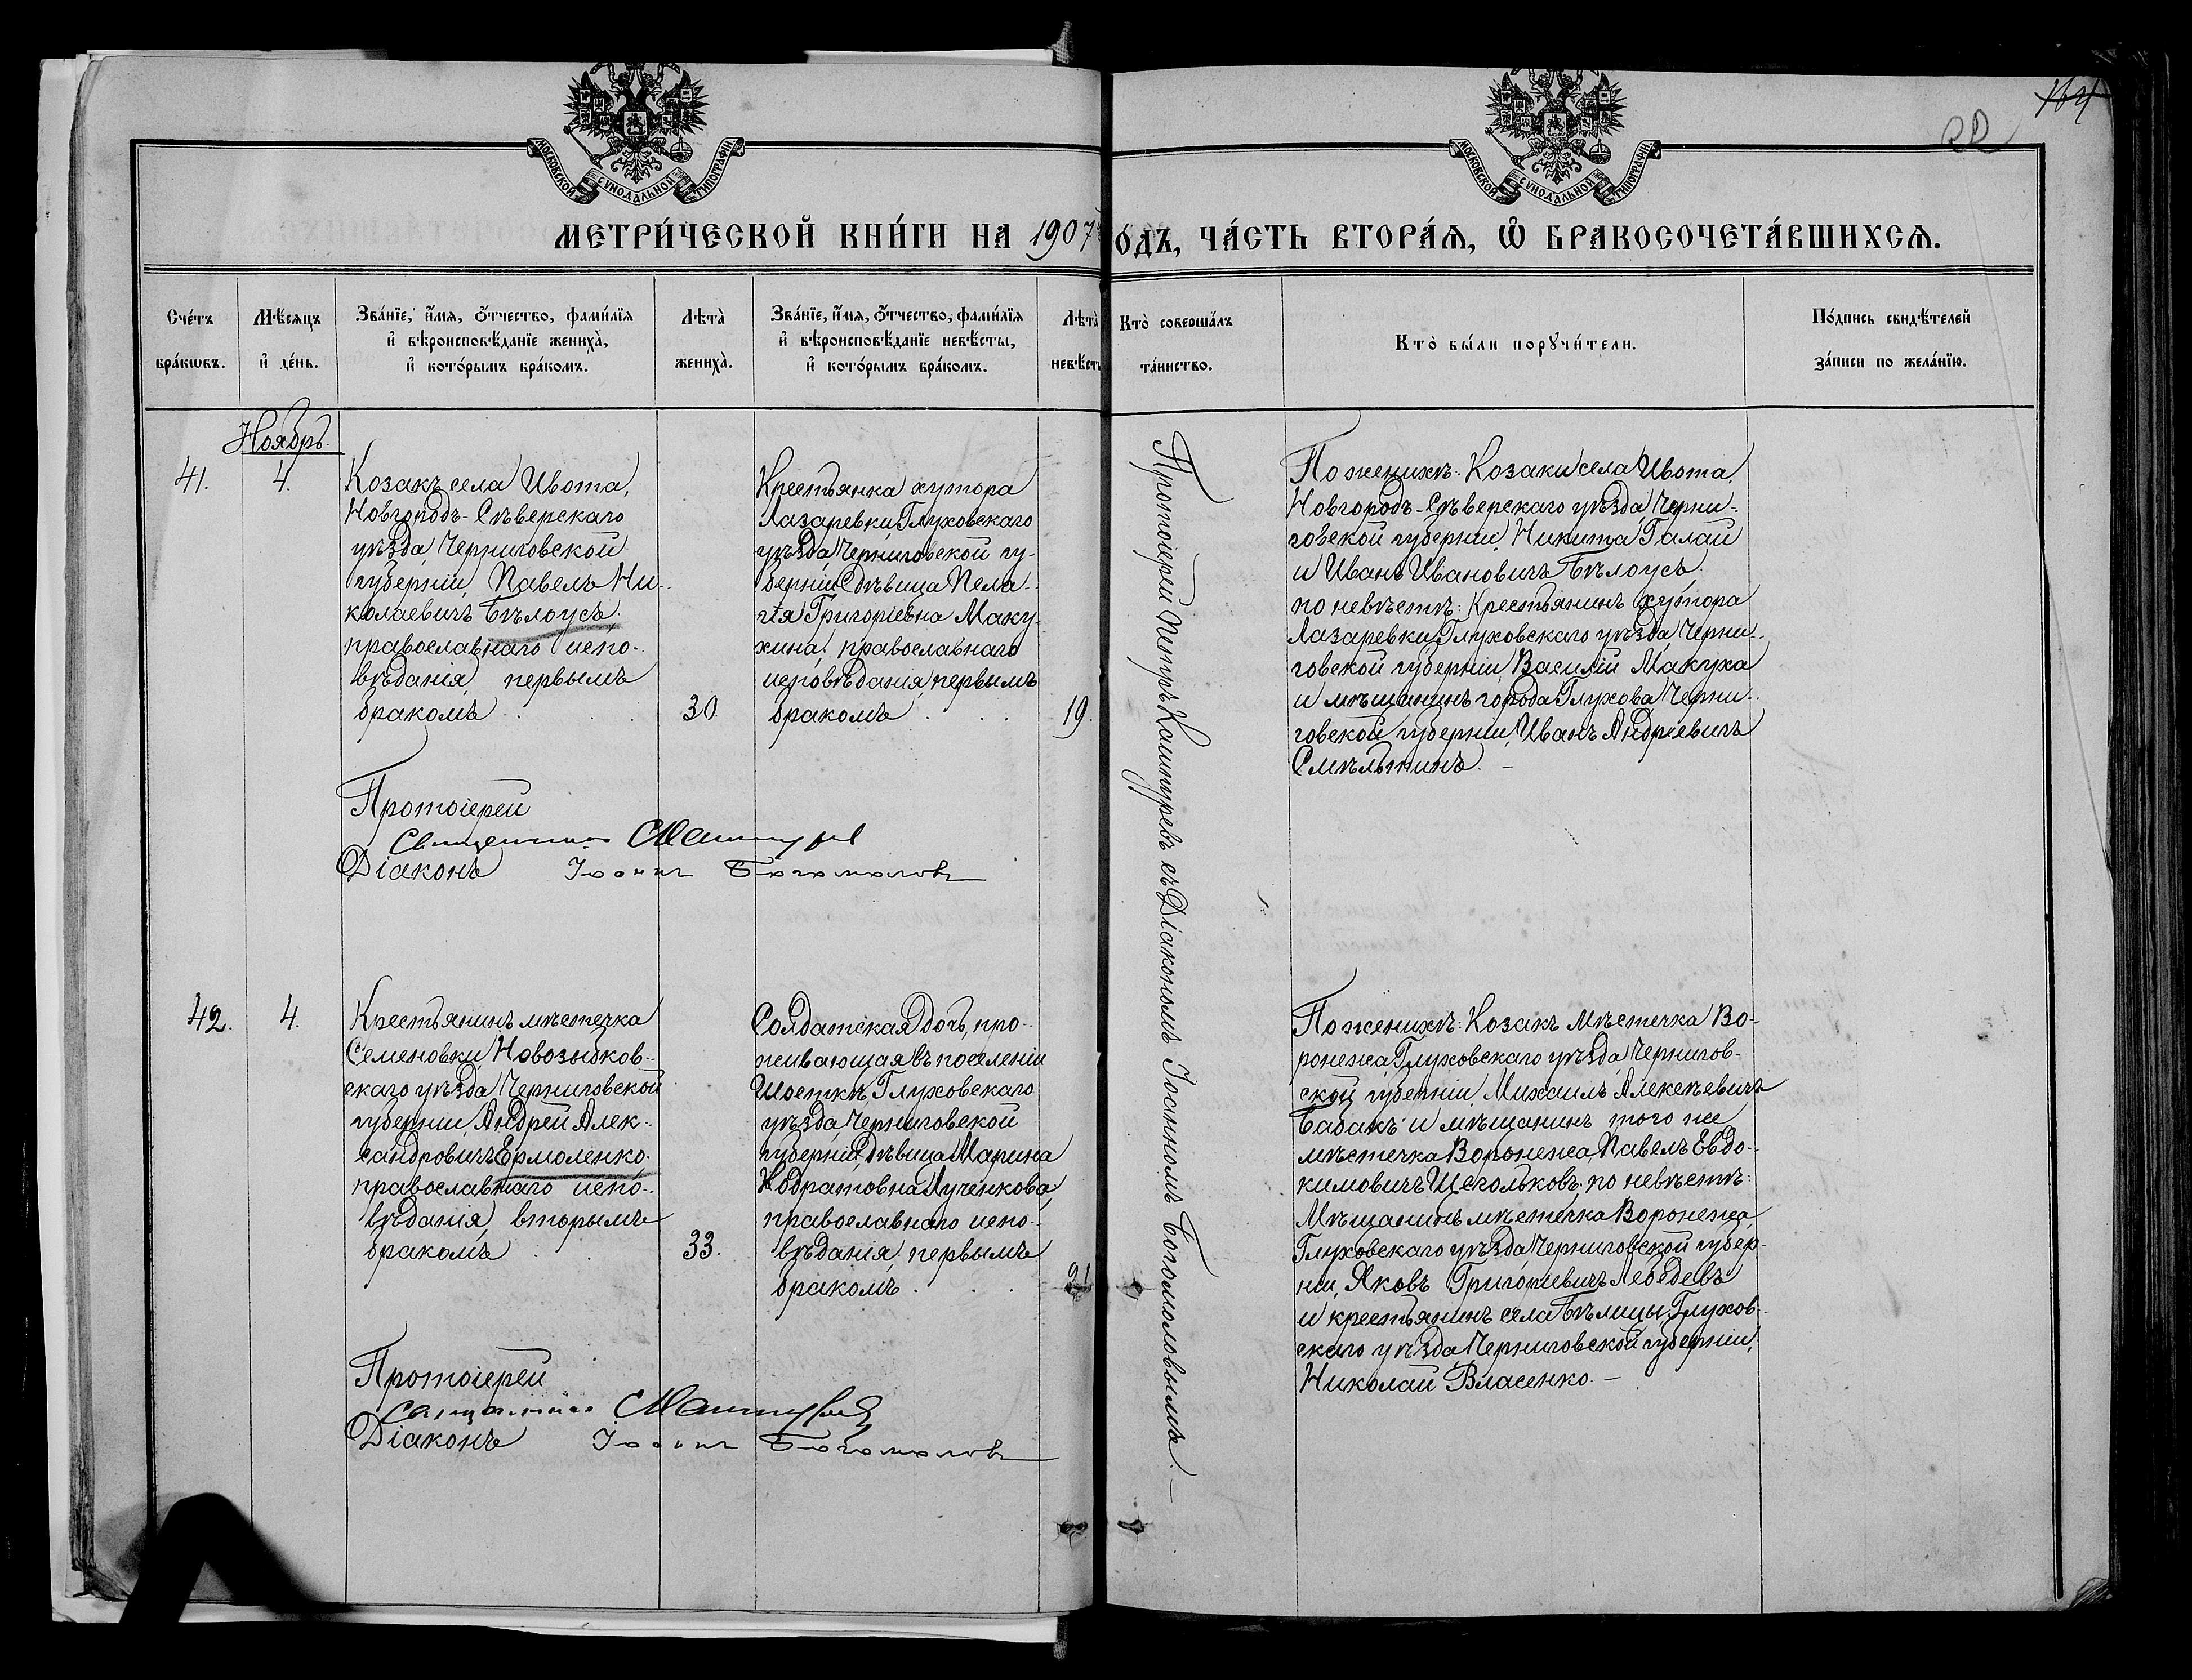 164
МОСКОВСКОЙ СѴНОДАЛЬНОЙ ТИПОГРАФІИ
МОСКОВСКОЙ СѴНОДАЛЬНОЙ ТИПОГРАФІИ
МЕТРИ́ЧЕСКОЙ КНИ́ГИ НА 1907 ОДЪ, ЧА́СТЬ ВТОРА́Я, Ѽ БРАКОСОЧЕТА́ВШИХСЯ.
Сче́тъ
бра́кѡвъ.
Мѣ́сяцъ
и҆ де́нь.
Зва́нїе, и҆́мя, ѻ҆́тчество, фами́лїя
и҆ вѣроисповѣ́данїе жениха̀,
и҆ кото́рымъ бра́комъ.
Лѣта̀
жениха̀.
Зва́нїе, и҆́мя, ѻ҆́тчество, фами́лїя
и҆ вѣроисповѣ́данїе невѣ́сты,
и҆ кото́рымъ бра́комъ.
Лѣта̀
невѣ́сты
Кто̀ соверша́лъ
та́инство.
Кто̀ бы́ли порꙋчи́тели.
По́дпись свидѣ́телей
за́писи по жела́нїю.
Ноябрь.
41.
4.
Козакъ села Ивота,
Новгородъ-Сѣверскаго
уѣзда Черниговской
губерніи, Павелъ Ни-
колаевичъ Бѣлоусъ.
православнаго испо-
вѣданія, первымъ
бракомъ
30.
Крестьянка хутора
Лазаревки, Глуховскаго
уѣзда, Черниговской гу-
берніи, дѣвица Пела-
гія Григоріевна Маку-
хина, православнаго
исповѣданія, первымъ
бракомъ
19.
Протоіерей
Священникъ
Діаконъ Іоаннъ Богомоловъ
Протоіерей Петръ Кашпуревъ съ Діакономъ Іоанномъ Богомоловымъ. —
По женихѣ: Козаки села Ивота,
Новгородъ-Сѣверскаго уѣзда, Черни-
говской губерніи, Никита Галай
и Иванъ Ивановичъ Бѣлоусъ.
по невѣстѣ: Крестьянинъ хутора
Лазаревки, Глуховскаго уѣзда, Черни-
говской губерніи, Василій Макуха
и мѣщанинъ города Глухова, Черни-
говской губерніи, Иванъ Андріевичъ
42.
4.
Крестьянинъ мѣстечка
Семеновки, Новозыбков-
скаго уѣзда, Черниговской
губерніи, Андрей Алек-
сандровичъ Ермоленко.
православнаго испо-
вѣданія, вторымъ
бракомъ
33.
Солдатская дочь, про-
живающая въ поселеніи
Шосткѣ, Глуховскаго
уѣзда, Черниговской
губерніи, дѣвица Марина
Кодратовна Лученкова,
православнаго испо-
вѣданія, первымъ
бракомъ.
21
Протоіерей
Священникъ
Діаконъ Іоаннъ Богомоловъ
По женихѣ: Козакъ мѣстечка Во-
ронежа, Глуховскаго уѣзда, Чернигов-
ской губерніи, Михаилъ Алексѣевичъ
Бабакъ и мѣщанинъ того же
мѣстечка Воронежа, Павелъ Евдо-
кимовичъ Щегольковъ, по невѣстѣ:
Мѣщанинъ мѣстечка Воронежа,
Глуховскаго уѣзда, Черниговской губер-
ніи, Яковъ Григоріевичъ Лебедевъ
и крестьянинъ села Бѣлицы, Глухов-
скаго уѣзда, Черниговской губерніи,
Николай Власенко. —